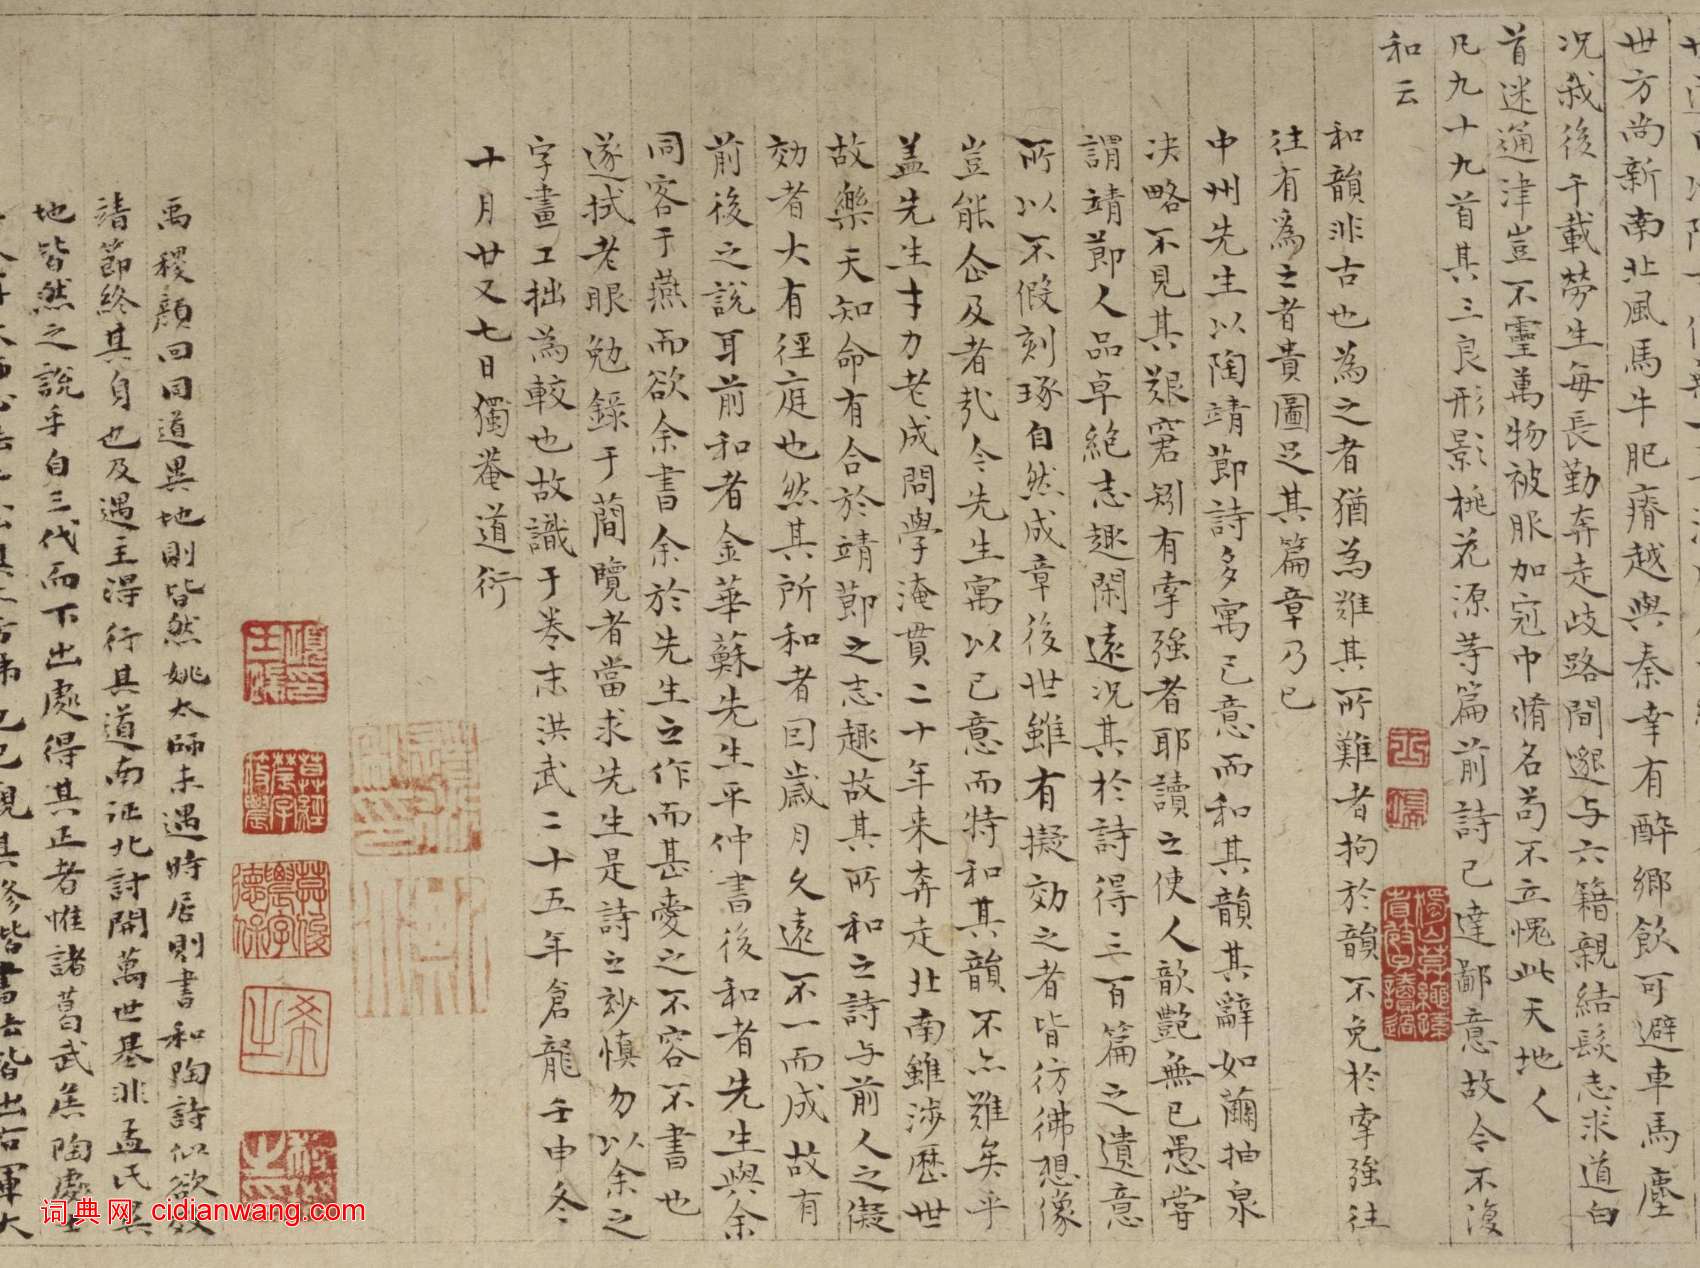 世方尚新南北風馬牛肥瘠越與秦幸有醉鄉飲可避車馬塵
況我後千載勞生每長勤奔走歧路間邈与六籍親結髮志求道白
首迷通津豈不靈萬物被服加冠巾脩名苟不立愧此天地人
凡九十九首其三良形影桃花源等篇前詩已達鄙意故今不復
和云
和韻非古也為之者猶為難其所難者拘於韻不免於牽強往
往有為之者貴圖足其篇章乃已
中州先生以陶靖節詩多寓己意而和其韻其辭如繭抽泉
決略不見其艱窘矧有牽強者耶讀之使人歆艷無已愚嘗
謂靖節人品卓絕志趣閑遠況其於詩得三百篇之遺意
所以不假刻琢自然成章後世雖有擬効之者皆彷彿想像
豈能企及者哉今先生寓以己意而特和其韻不亦難矣乎
盖先生才力老成問學淹貫二十年来奔走北南雖涉歷世
故樂天知命有合於靖節之志趣故其所和之詩与前人之儗
効者大有徑庭也然其所和者曰歲月久遠不一而成故有
前後之說耳前和者金華蘇先生平仲書後和者先生與余
同客于燕而欲余書余於先生之作而甚愛之不容不書也
遂拭老眼勉錄于蕳覽者當求先生是詩之妙慎勿以余之
字畫工拙為較也故識于卷末洪武二十五年倉龍壬申冬
十月廿又七日獨菴道衍
禹稷顏回同道異地則皆然姚太師未遇時居則書和陶詩似欲效
靖節終其身也及遇主得行其道南征北討開萬世基非孟氏異
地皆然之說乎自三代而下出處得其正者惟諸葛武侯陶處士
词典网 cidianwang.com